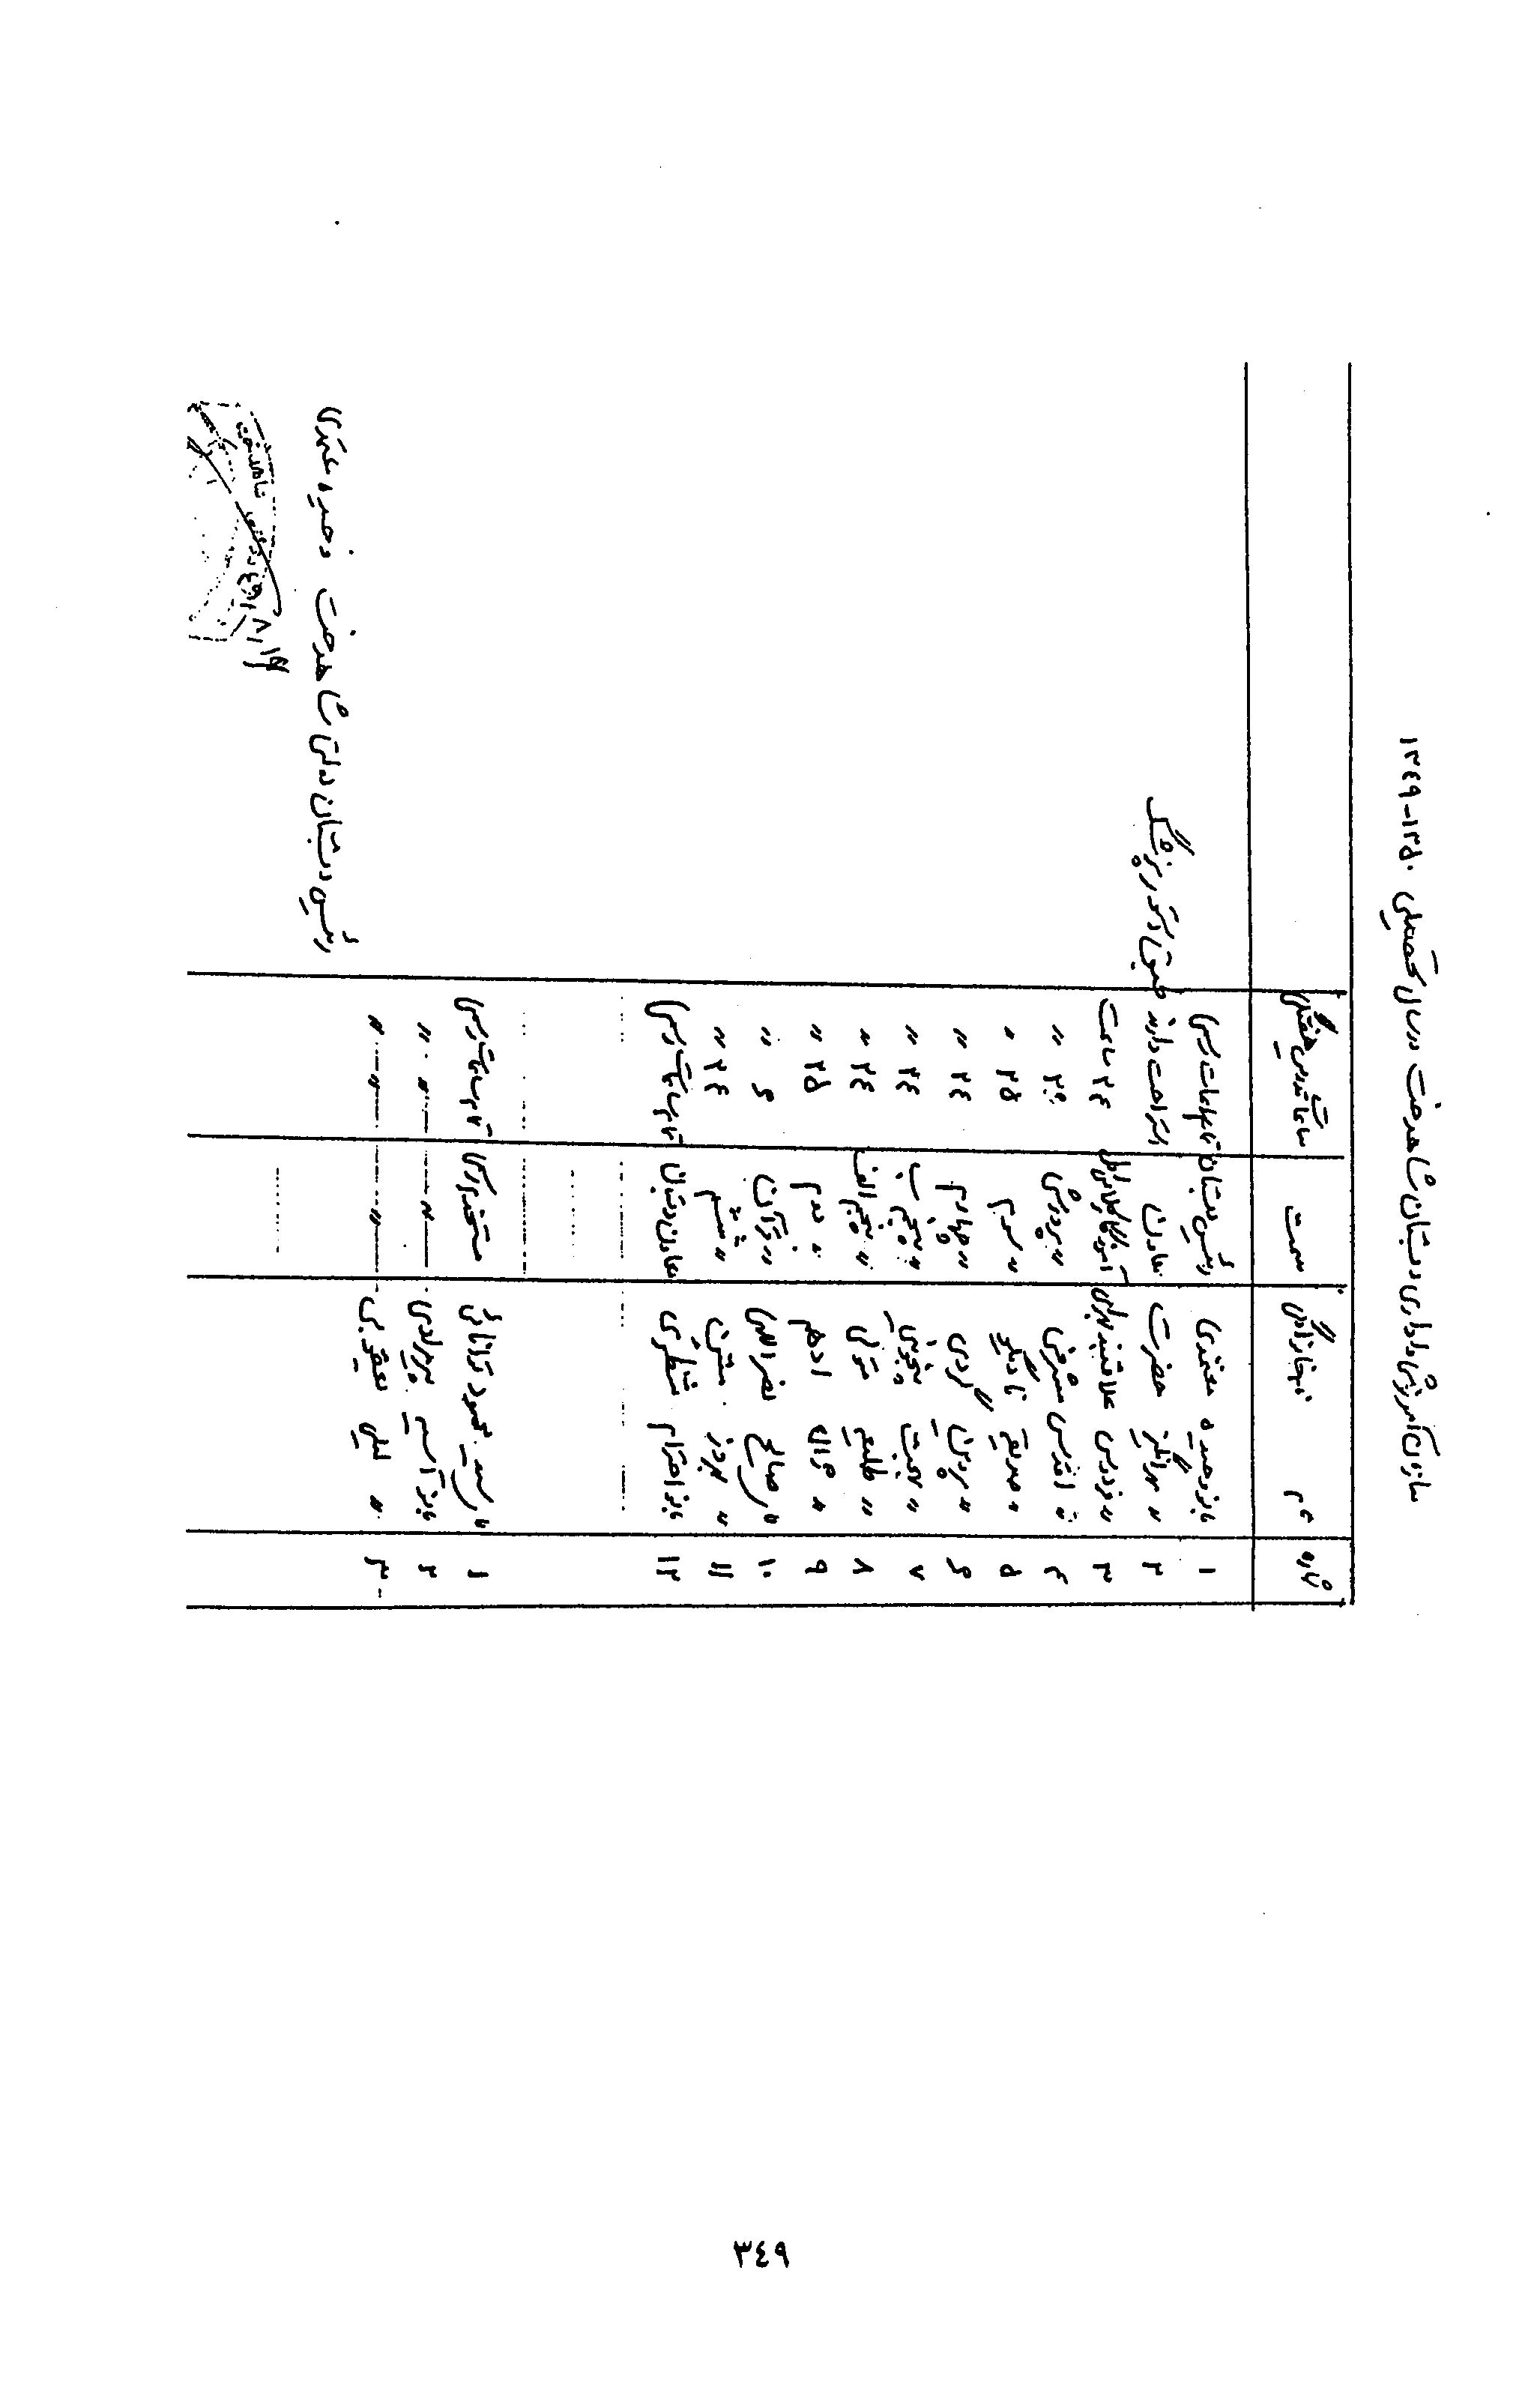 سازمان آموزشی و اداری دبستان شاهدخت در سال تحصیلی ۱۳۵۰-۱۳۴۹
شماره نام نام خانوادگی سمت ساعات تدریس هفتگی
۱ بانو وحیده معتمدی رئیس دبستان تمام ساعات رسمی
۲ " مهرانگیز حضرت معاون استراحت دارند طبق دستور پزشک
۳ " فردوس علاقبند آموزگار کلاس اول ۲۴ ساعت
۴ " اقدس مشرفی " پرورش ۲۰ "
۵ " صدیقه " سوم ۲۵ "
۶ " پروین گردی " چهارم ۲۴ "
۷ " بهجت " پنجم ب ۲۴ "
۸ " طلیعه متولی " پنجم الف ۲۴ "
۹ " ادهم " دوم ۲۵ "
۱۰ " صالح نصراللهی " قرآن ۶ "
۱۱ " بهروز " ششم ۲۴ "
۱۲ بانو احترام منتظری معاون دبستان تمام ساعات رسمی
۱ محمود توانائی مستخدم رسمی تمام ساعات رسمی
۲ بانو آسیه " " "
۳ " لیلی یعقوبی " " "
رئیس دبستان دولتی شاهدخت وحیده معتمدی
۳۴۹